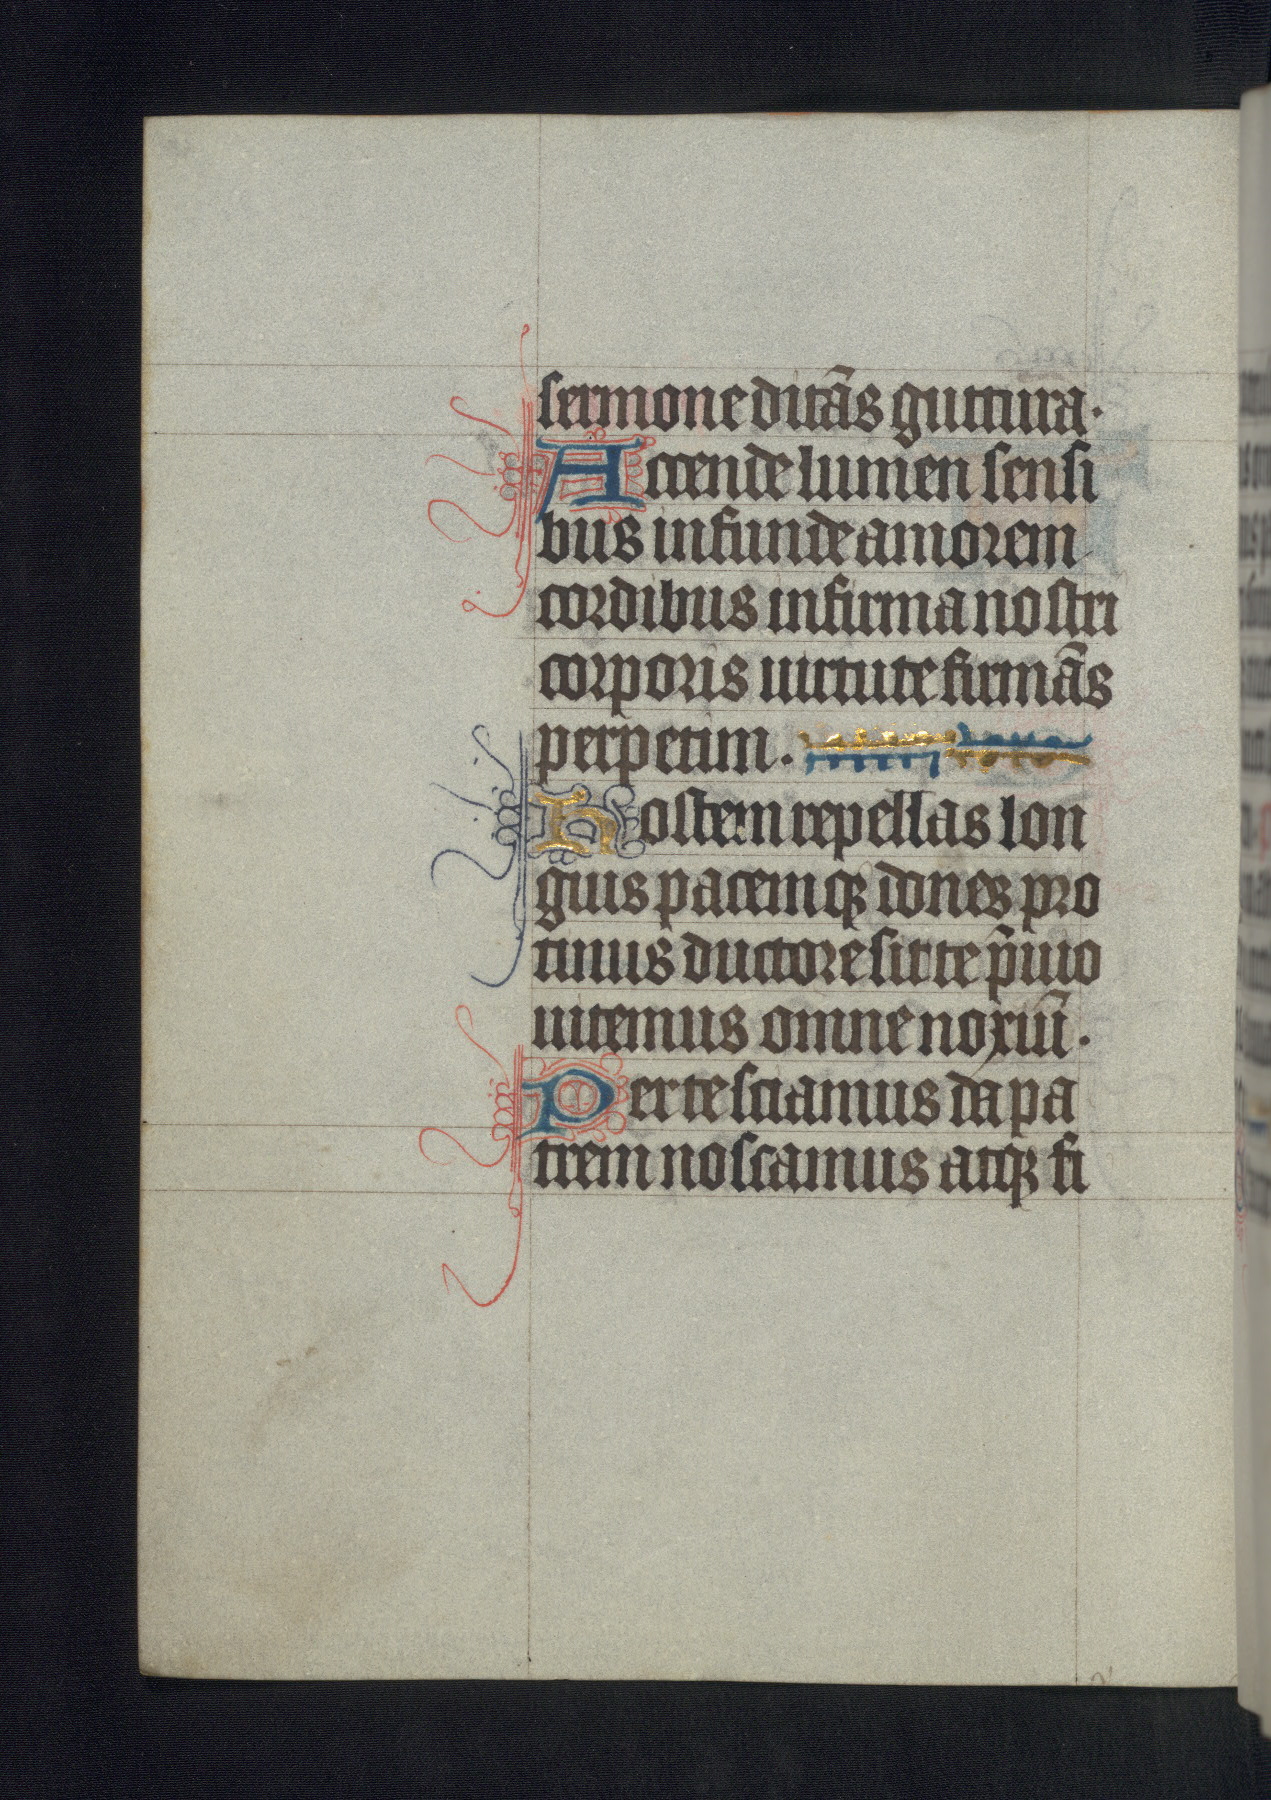 sermone ditās guttura.
Accende lumen sensi
bus infunde amorem
cordibus infirma nostri
corporis uirtute firmās
perpetim.
Hostem repellas lon
gius pacemqꝫ dones pro
tinus ductore sic te p̄uio
uitemus omne noxiū.
Per te sciamus da pa
trem noscamus atqꝫ fi